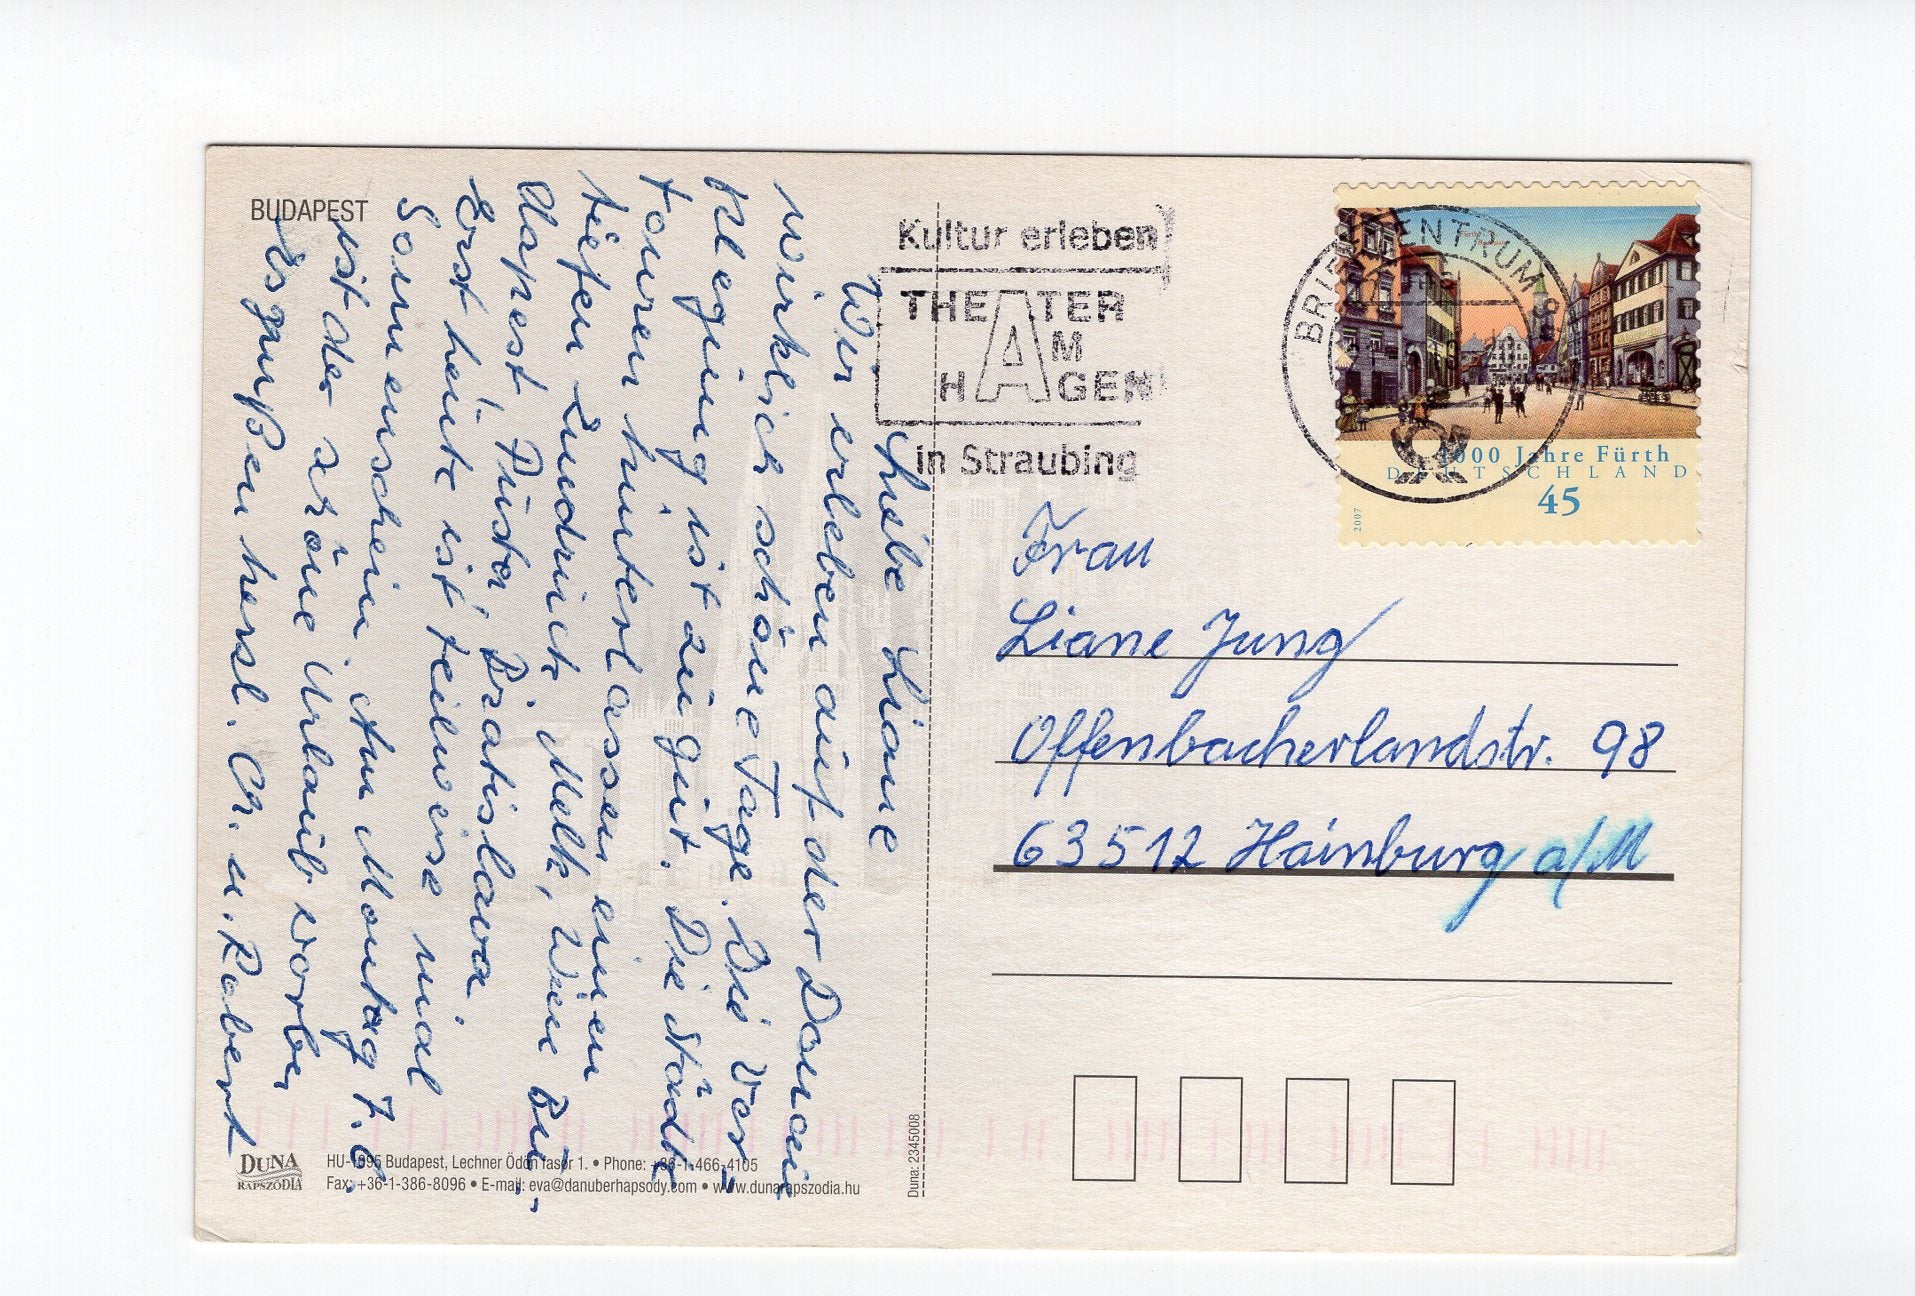 BUDAPEST
Liebe Liane
Wir erleben auf der Donau
wirklich schöne Tage. Die Ver-
pflegung ist zu gut. Die Stadt
touren hinterlassen einen
tiefen Eindruck. Melk, Wien Bu-
dapest, Pusta, Bratislava.
Erst heute ist teilweise mal
Sonnenschein Am Montag 7.6.
ist der schöne Urlaub vorbei
Es grüßen herzl. Ch. u. Robert
Kultur erleben
THEATER
AM
HAGEN
in Straubing
BRIEFZENTRUM
1000 Jahre Fürth
DEUTSCHLAND
45
2007
Frau
Liane Jung
Offenbacherlandstr. 98
63512 Hainburg a/M
DUNA
RAPSZÓDIA
HU-1095 Budapest, Lechner Ödön fasor 1. • Phone: +36-1-466-4105
Fax: +36-1-386-8096 • E-mail: eva@danuberhapsody.com • www.dunarapszodia.hu
Duna: 2345008